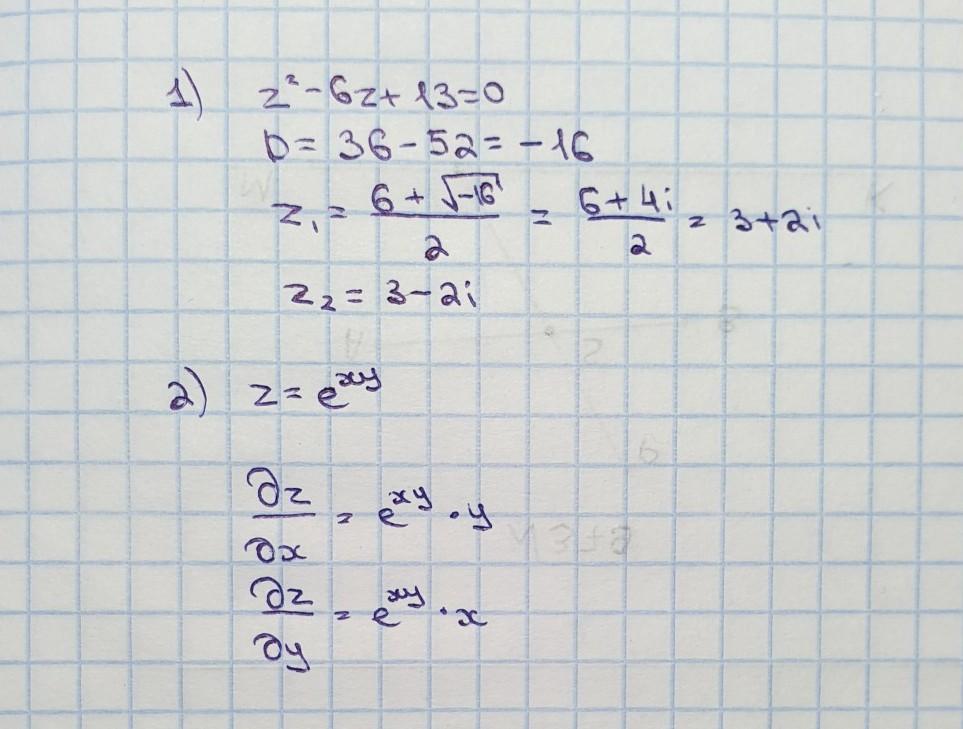 1) z² - 6z + 13 = 0
D = 36 - 52 = -16
z₁ = (6 + √-16)/2 = (6 + 4i)/2 = 3 + 2i
z₂ = 3 - 2i
2) z = e^{xy}
∂z/∂x = e^{xy} · y
∂z/∂y = e^{xy} · x